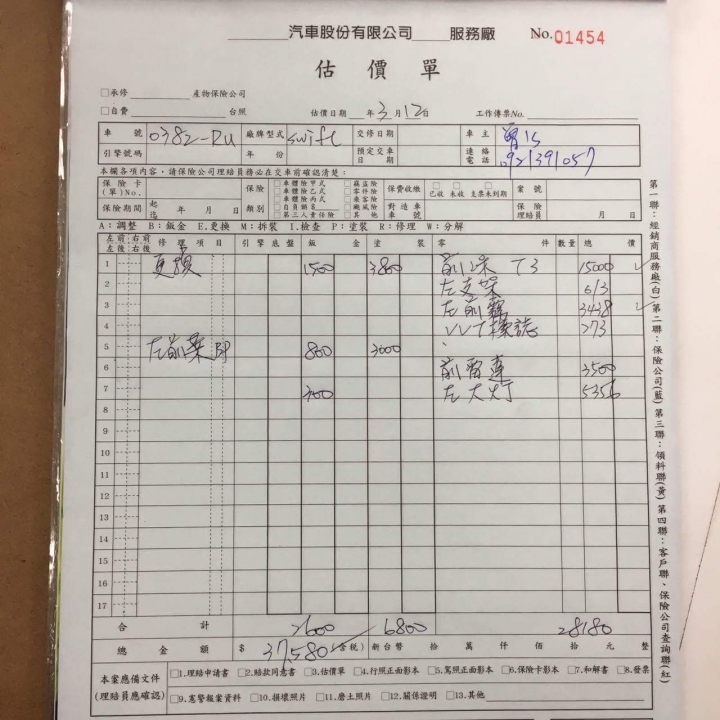 汽車股份有限公司 服務廠 No.01454
估價單
□承修 產物保險公司
□自費 台照 估價日期 年3月12日 工作傳票No.
車號 0382-RU 廠牌型式 swift 交修日期 車主
引擎號碼 年份 預定交車日期 連絡電話 0921391057
本欄各項內容,請保險公司理賠員務必在交車前確認清楚:
保險卡(單)No. 保險類別 □車體險甲式 □竊盜險 保費收繳 □已收 □未收 □支票未到期 案號
□車體險乙式 □零件險
保險期間 起迄 □車體險丙式 □乘客險 對造車車號 保險理賠員 月 日
□自負額 □颱風險
□第三人責任險 □其他
A:調整 B:鈑金 E.更換 M:拆裝 I.檢查 P:塗裝 R:修理 W:分解
左前 右前 左後 右後 修理項目 引擎底盤 鈑金 塗裝 零件 數量 總價
1 1500 3800 前保 T3 15000
2 左支架 613
3 左前 3438
4 273
5 左前葉 800 3000
6 前雷達 3500
7 300 左大灯 5356
8
9
10
11
12
13
14
15
16
17
合計 2600 6800 28180
總金額 $37,580 (含稅) 新台幣 拾 萬 仟 佰 拾 元 整
本案應備文件(理賠員應確認) □1.理賠申請書 □2.賠款同意書 □3.估價單 □4.行照正面影本 □5.駕照正面影本 □6.保險卡影本 □7.和解書 □8.發票
□9.憲警報案資料 □10.損壞照片 □11.磨土照片 □12.關係證明 □13.其他
第一聯:經銷商服務廠(白) 第二聯:保險公司(藍) 第三聯:領料聯(黃) 第四聯:客戶聯、保險公司查詢聯(紅)